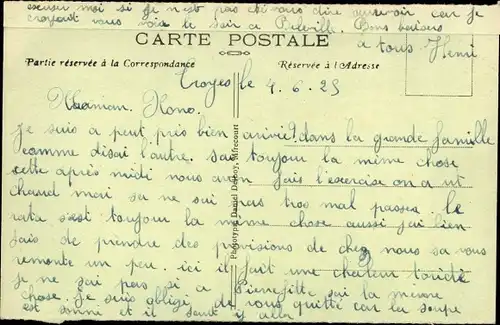 excusé moi si je n'est pas chi vous dire aurevoir car je
croyait vous voir le soir a Belville. Bons baisers
a tous Henri
CARTE POSTALE
Partie réservée à la Correspondance
Réservée à l'Adresse
Troyes le 4.6.25
Maman. Nono.
je suis a peut près bien arrivé dans la grande famille
comme disai l'autre. sai toujour la même chose
cette après midi nous avon fais l'exercise on a ut
chaud mai sa ne sai pas tros mal passer. le
rata s'est toujour la même chose aussi jai bien
fais de prendre des provisions de chez nous sa vous
remonte un peu. ici il fait une chaleur toride
je ne sai pas si a Pierrefitte sai la même
chose. Je suis obligé de vous quitté car la soupe
est sonné et il faut y aller
Phototypie Daniel Delboy, Mirecourt